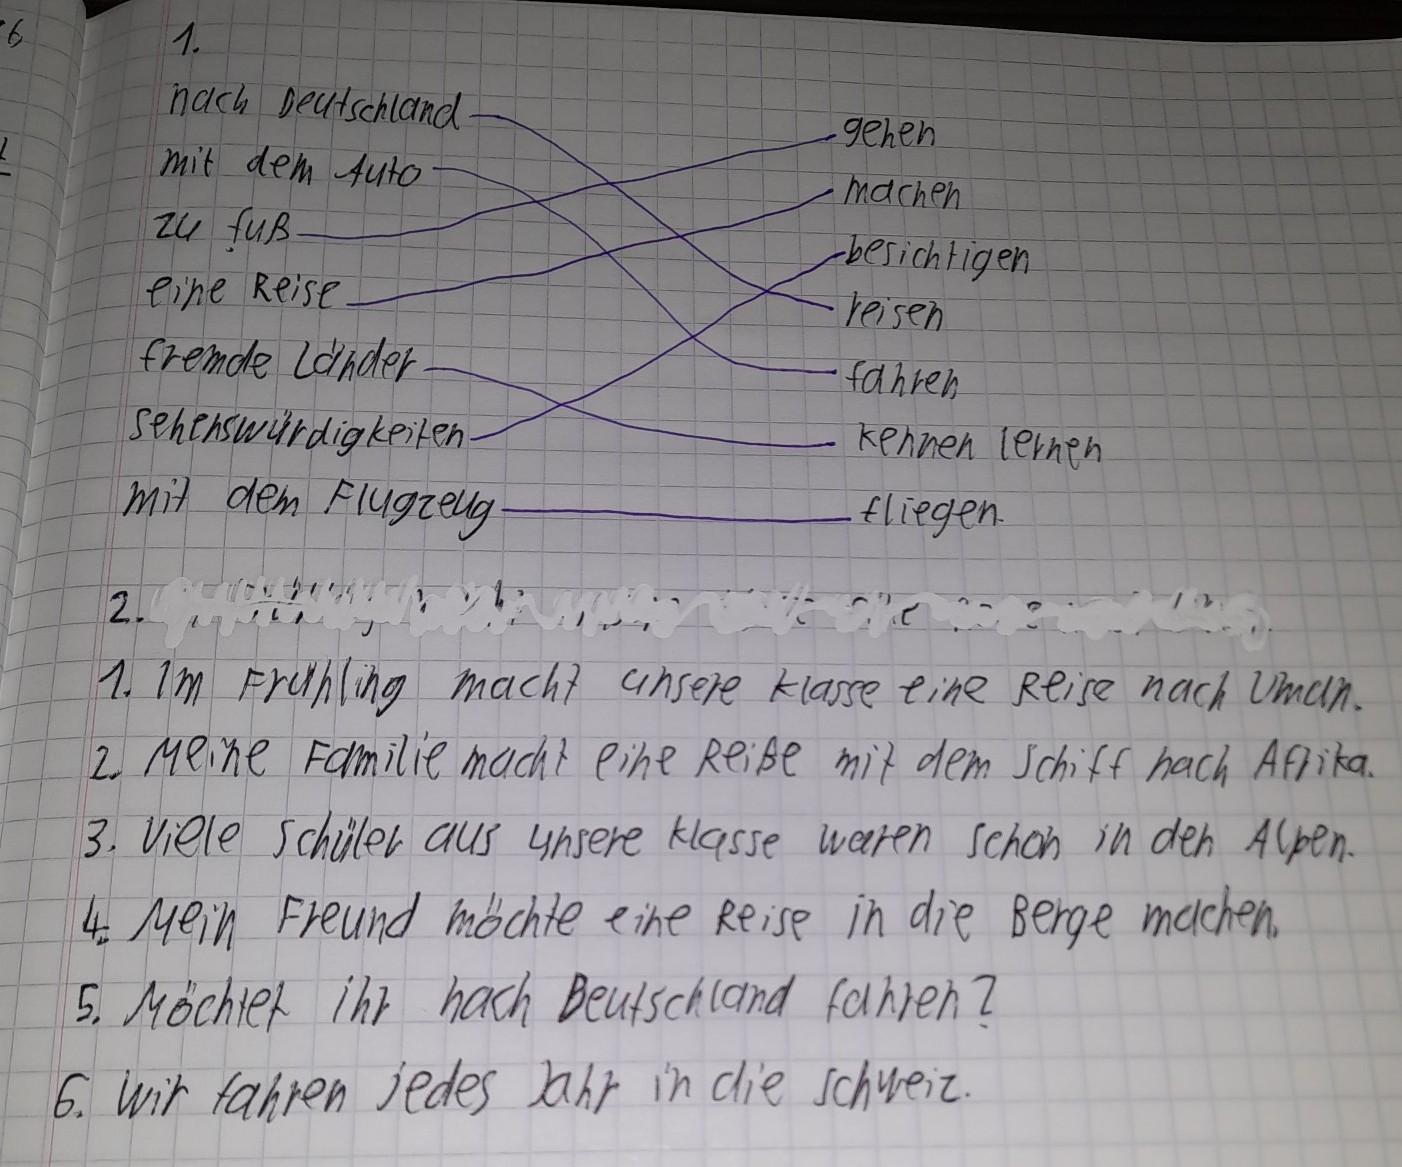 1.
nach Deutschland
gehen
mit dem Auto
machen
zu fuß
besichtigen
eine Reise
reisen
fremde Länder
fahren
Sehenswürdigkeiten
kennen lernen
mit dem Flugzeug
fliegen.
2.
1. Im Frühling macht unsere Klasse eine Reise nach Uman.
2. Meine Familie macht eine Reiße mit dem Schiff nach Afrika.
3. Viele Schüler aus unsere Klasse waren schon in den Alpen.
4. Mein Freund möchte eine Reise in die Berge machen.
5. Möchtet ihr nach Deutschland fahren?
6. Wir fahren jedes Jahr in die Schweiz.